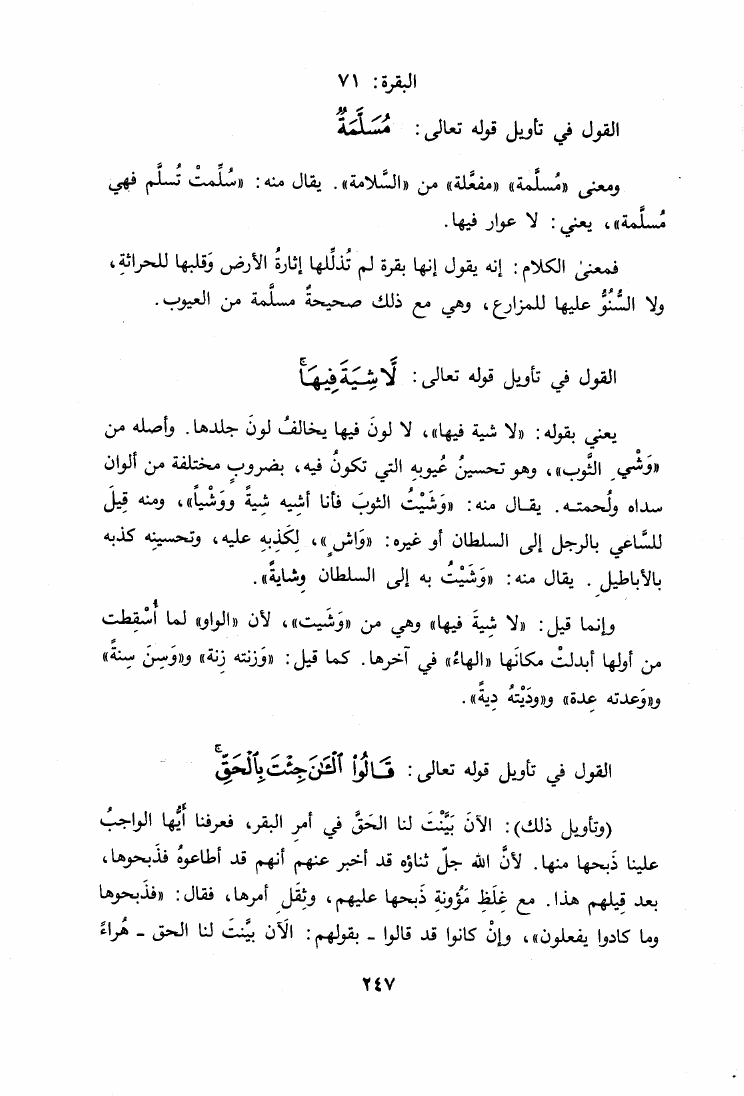 البقرة: ٧١
القول في تأويل قوله تعالى: مُسَلَّمَةٌ
ومعنى «مُسلَّمة» «مفعَّلة» من «السَّلامة». يقال منه: «سُلِّمتْ تُسلَّم فهي
مُسلَّمة»، يعني: لا عوار فيها.
فمعنىٰ الكلام: إنه يقول إنها بقرة لم تُذلِّلها إثارةُ الأرض وَقلبها للحراثةِ،
ولا السُّنُوُّ عليها للمزارع، وهي مع ذلك صحيحةٌ مسلَّمة من العيوب.
القول في تأويل قوله تعالى: لَّا شِيَةَ فِيهَا ۚ
يعني بقوله: «لا شية فيها»، لا لونَ فيها يخالفُ لونَ جلدها. وأصله من
«وَشْي الثَّوب»، وهو تحسينُ عُيوبهِ التي تكونُ فيه، بضروبٍ مختلفة من ألوان
سداه ولُحمته. يقال منه: «وَشَيْتُ الثوبَ فأنا أشيه شيةً ووَشْياً»، ومنه قيلَ
للسَّاعي بالرجل إلى السلطان أو غيره: «وَاشٍ»، لِكَذِبهِ عليه، وتحسينِه كذبه
بالأباطيلِ. يقال منه: «وَشَيْتُ به إلى السلطان وِشايةً».
وإنما قيل: «لا شِيةَ فيها» وهي من «وَشَيت»، لأن «الواو» لما أُسْقِطت
من أولها أبدلتْ مكانَها «الهاءُ» في آخرها. كما قيل: «وَزنته زِنة» و«وَسِنَ سِنةً»
و«وَعدته عِدة» و«ودَيْتهُ دِيةً».
القول في تأويل قوله تعالى: قَالُوا۟ ٱلْـَٰٔنَ جِئْتَ بِٱلْحَقِّ ۚ
(وتأويل ذلك): الآنَ بَيَّنْتَ لنا الحَقَّ في أمرِ البقر، فعرفنا أَيُّها الواجبُ
علينا ذَبحها منها. لأنَّ الله جلّ ثناؤه قد أخبر عنهم أنهم قد أطاعوهُ فذَبحوها،
بعد قِيلهم هذا. مع غِلَظِ مَؤُونةِ ذَبحها عليهم، وثِقَلِ أمرها، فقال: «فذَبحوها
وما كادوا يفعلون»، وإنْ كانوا قد قالوا ـ بقولهم: الَآن بيَّنتَ لنا الحق ـ هُراءً
٢٤٧